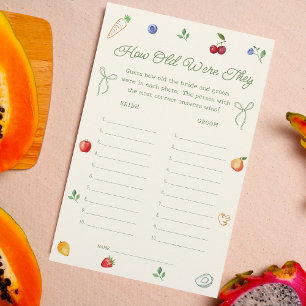 How Old Were They
Guess how old the bride and groom
were in each photo. The person with
the most correct answers wins!
BRIDE
GROOM
1.
2.
3.
4.
5.
6.
7.
8.
9.
10.
1.
2.
3.
4.
5.
6.
7.
8.
9.
10.
NAME